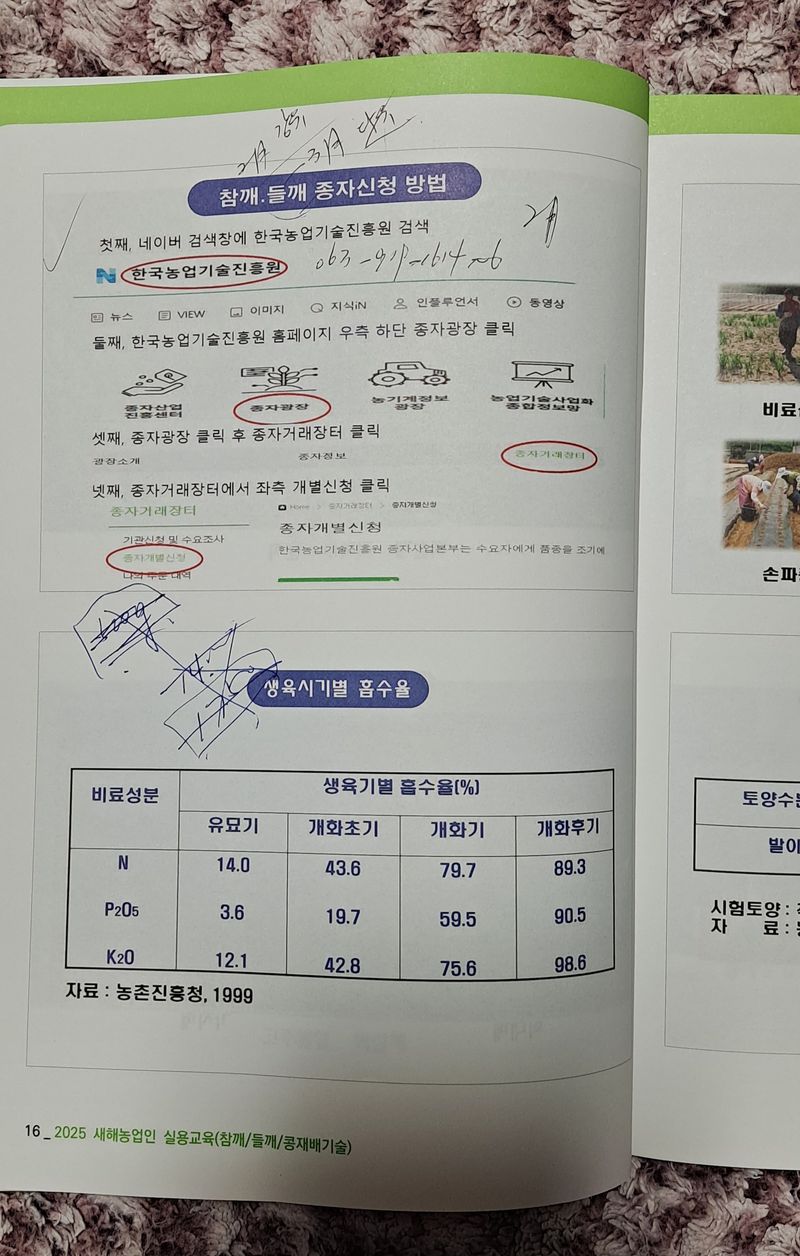 2월
3월
참깨.들깨 종자신청 방법
첫째, 네이버 검색창에 한국농업기술진흥원 검색
2月
N 한국농업기술진흥원
063-919-1614~6
뉴스 VIEW 이미지 지식iN 인플루언서 동영상
둘째, 한국농업기술진흥원 홈페이지 우측 하단 종자광장 클릭
종자산업 진흥센터
종자광장
농기계정보 광장
농업기술사업화 종합정보망
셋째, 종자광장 클릭 후 종자거래장터 클릭
광장소개 종자정보 종자거래장터
넷째, 종자거래장터에서 좌측 개별신청 클릭
종자거래장터
Home > 종자거래장터 > 종자개별신청
종자개별신청
기관신청 및 수요조사
한국농업기술진흥원 종자사업본부는 수요자에게 품종을 조기에
종자개별신청
나의 주문 내역
생육시기별 흡수율
비료성분 생육기별 흡수율(%)
유묘기 개화초기 개화기 개화후기
N 14.0 43.6 79.7 89.3
P2O5 3.6 19.7 59.5 90.5
K2O 12.1 42.8 75.6 98.6
자료 : 농촌진흥청, 1999
16_ 2025 새해농업인 실용교육(참깨/들깨/콩재배기술)
비료
손파
토양수분
발아
시험토양 :
자 료 :